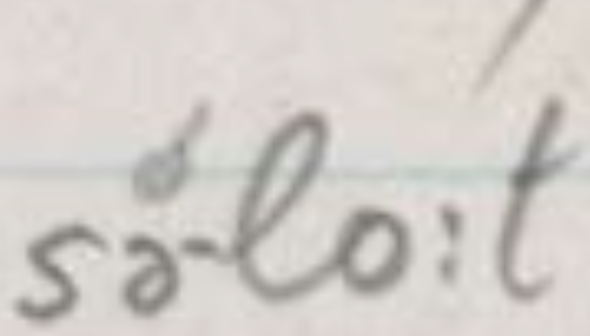 sə'lo:t